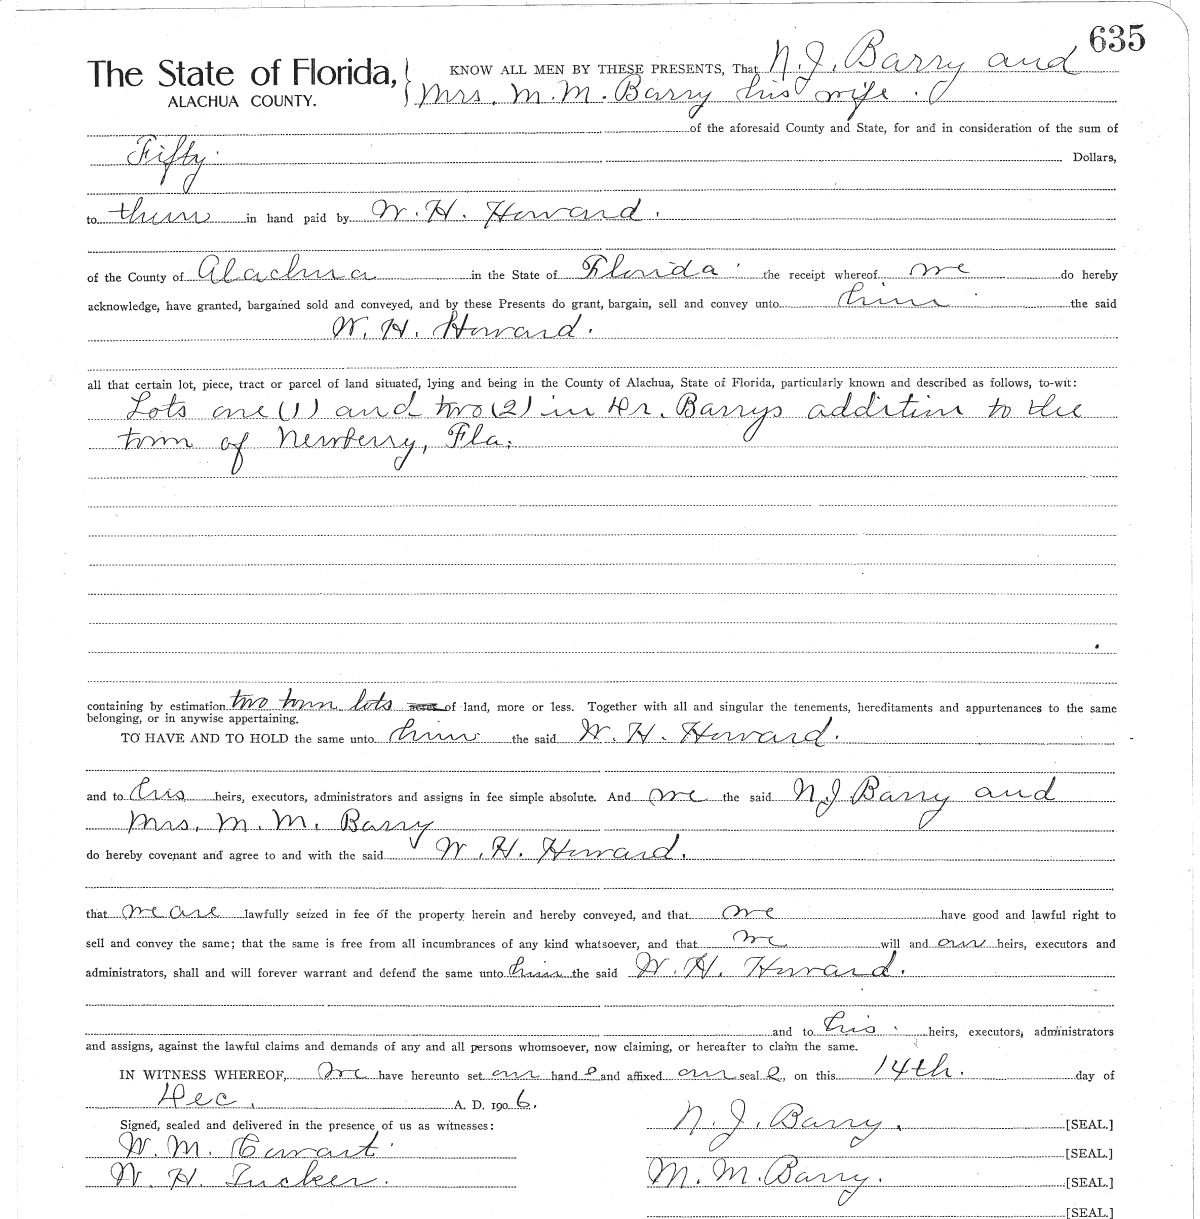 635
The State of Florida,
ALACHUA COUNTY.
KNOW ALL MEN BY THESE PRESENTS, That N. J. Barry and
Mrs. M. M. Barry his wife.
of the aforesaid County and State, for and in consideration of the sum of
Fifty Dollars,
to them in hand paid by W. H. Howard.
of the County of Alachua in the State of Florida the receipt whereof we do hereby
acknowledge, have granted, bargained sold and conveyed, and by these Presents do grant, bargain, sell and convey unto him the said
W. H. Howard.
all that certain lot, piece, tract or parcel of land situated, lying and being in the County of Alachua, State of Florida, particularly known and described as follows, to-wit:
Lots one (1) and two (2) in Dr. Barrys addition to the
town of Newberry, Fla.
containing by estimation two town lots acres of land, more or less. Together with all and singular the tenements, hereditaments and appurtenances to the same
belonging, or in anywise appertaining.
TO HAVE AND TO HOLD the same unto him the said W. H. Howard.
and to his heirs, executors, administrators and assigns in fee simple absolute. And we the said N. J. Barry and
Mrs. M. M. Barry
do hereby covenant and agree to and with the said W. H. Howard.
that we are lawfully seized in fee of the property herein and hereby conveyed, and that we have good and lawful right to
sell and convey the same; that the same is free from all incumbrances of any kind whatsoever, and that we will and our heirs, executors and
administrators, shall and will forever warrant and defend the same unto him the said W. H. Howard.
and to his heirs, executors, administrators
and assigns, against the lawful claims and demands of any and all persons whomsoever, now claiming, or hereafter to claim the same.
IN WITNESS WHEREOF, We have hereunto set our hand s and affixed our seal s, on this 14th. day of
Dec. A. D. 1906.
Signed, sealed and delivered in the presence of us as witnesses:
N. J. Barry. [SEAL.]
W. M. [SEAL.]
W. H. Tucker. M. M. Barry. [SEAL.]
[SEAL.]